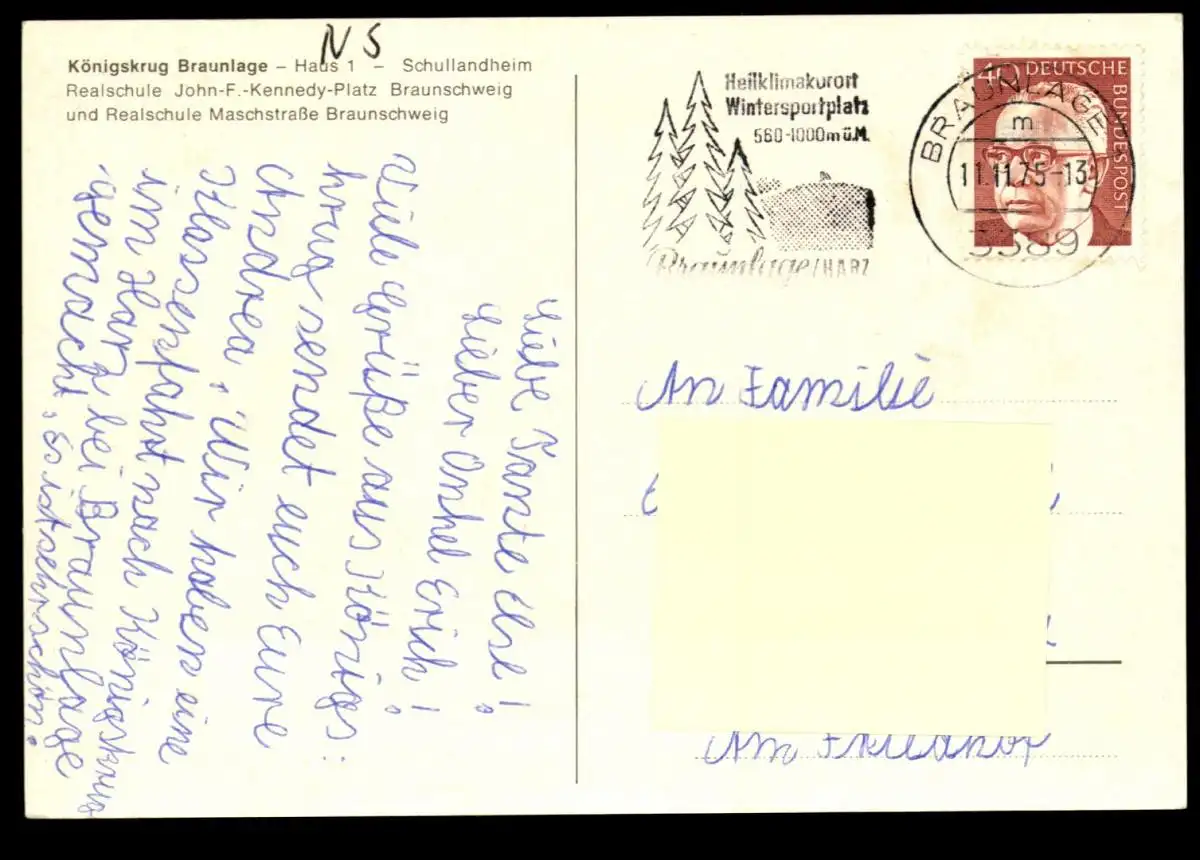 N S
Königskrug Braunlage – Haus 1 – Schullandheim
Realschule John-F.-Kennedy-Platz Braunschweig
und Realschule Maschstraße Braunschweig
Liebe Tante Else!
Lieber Onkel Erich!
Viele Grüße aus Königs:
krug sendet euch Eure
Andrea. Wir haben eine
Klassenfahrt nach Königskrug
im Harz bei Braunlage
gemacht, s ist sehr schön.
Heilklimakurort
Wintersportplatz
560-1000m ü.M.
Braunlage/HARZ
BRAUNLAGE
m
11.11.75-13
3389
40 DEUTSCHE
BUNDESPOST
An Familie
Am